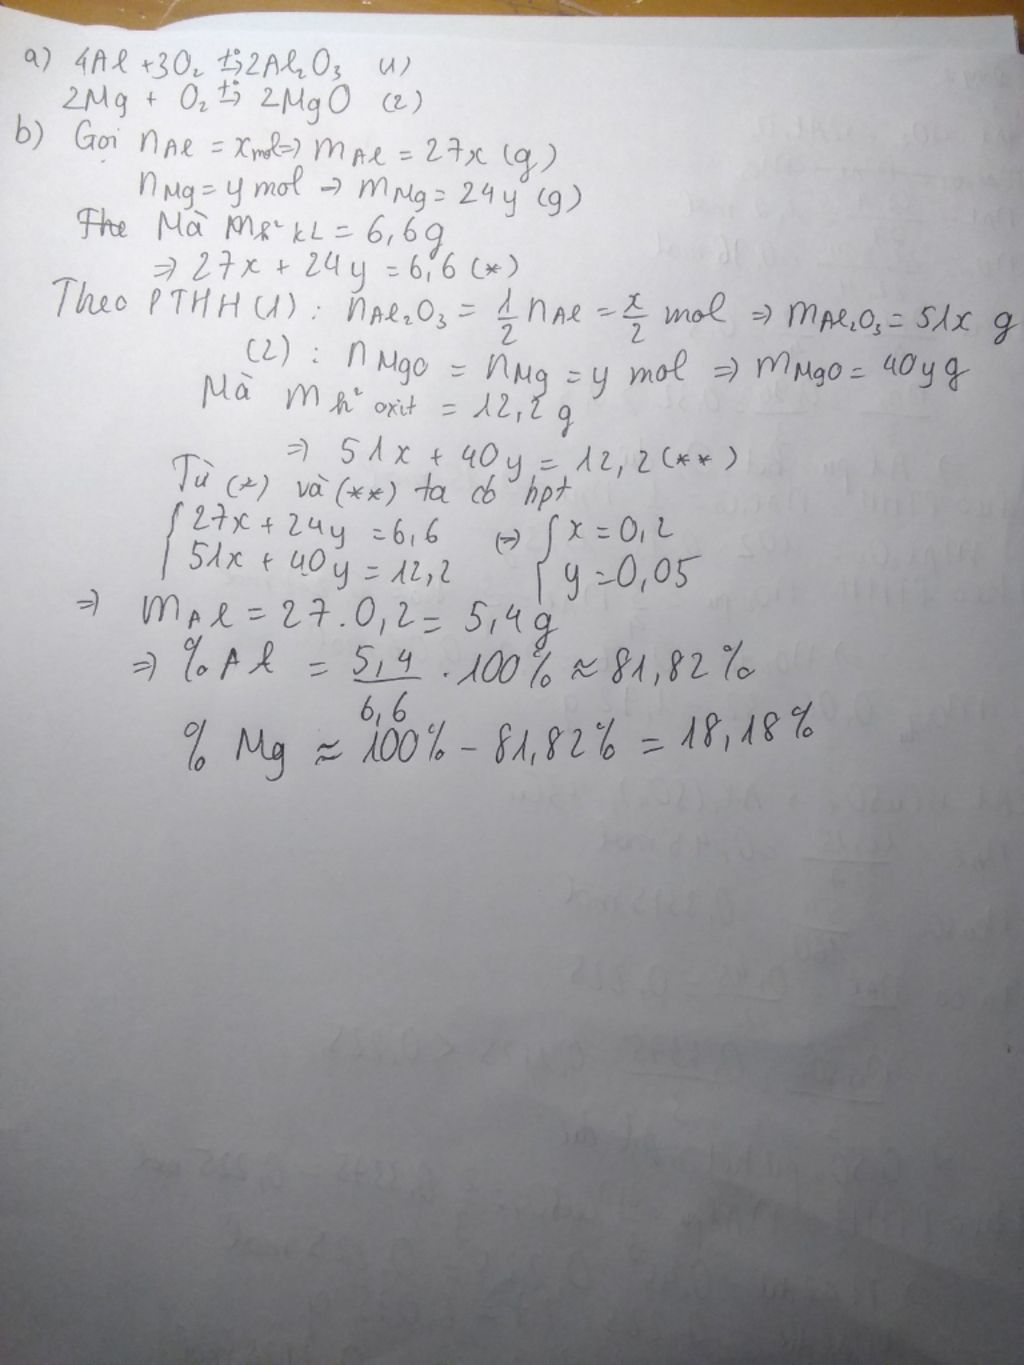 a) 4Al + 3O₂ →t° 2Al₂O₃ (1)
2Mg + O₂ →t° 2MgO (2)
b) Gọi nAl = x mol ⇒ mAl = 27x (g)
nMg = y mol → mMg = 24y (g)
The Mà m h² KL = 6,6g
⇒ 27x + 24y = 6,6 (*)
Theo PTHH (1) : nAl₂O₃ = 1/2 nAl = x/2 mol ⇒ mAl₂O₃ = 51x g
(2) : nMgO = nMg = y mol ⇒ mMgO = 40y g
Mà m h² oxit = 12,2 g
⇒ 51x + 40y = 12,2 (**)
Từ (*) và (**) ta có hpt
{ 27x + 24y = 6,6 (⇒) { x = 0,2
51x + 40y = 12,2 y = 0,05
⇒ mAl = 27 . 0,2 = 5,4 g
⇒ % Al = 5,4/6,6 . 100% ≈ 81,82 %
% Mg ≈ 100% - 81,82% = 18,18%